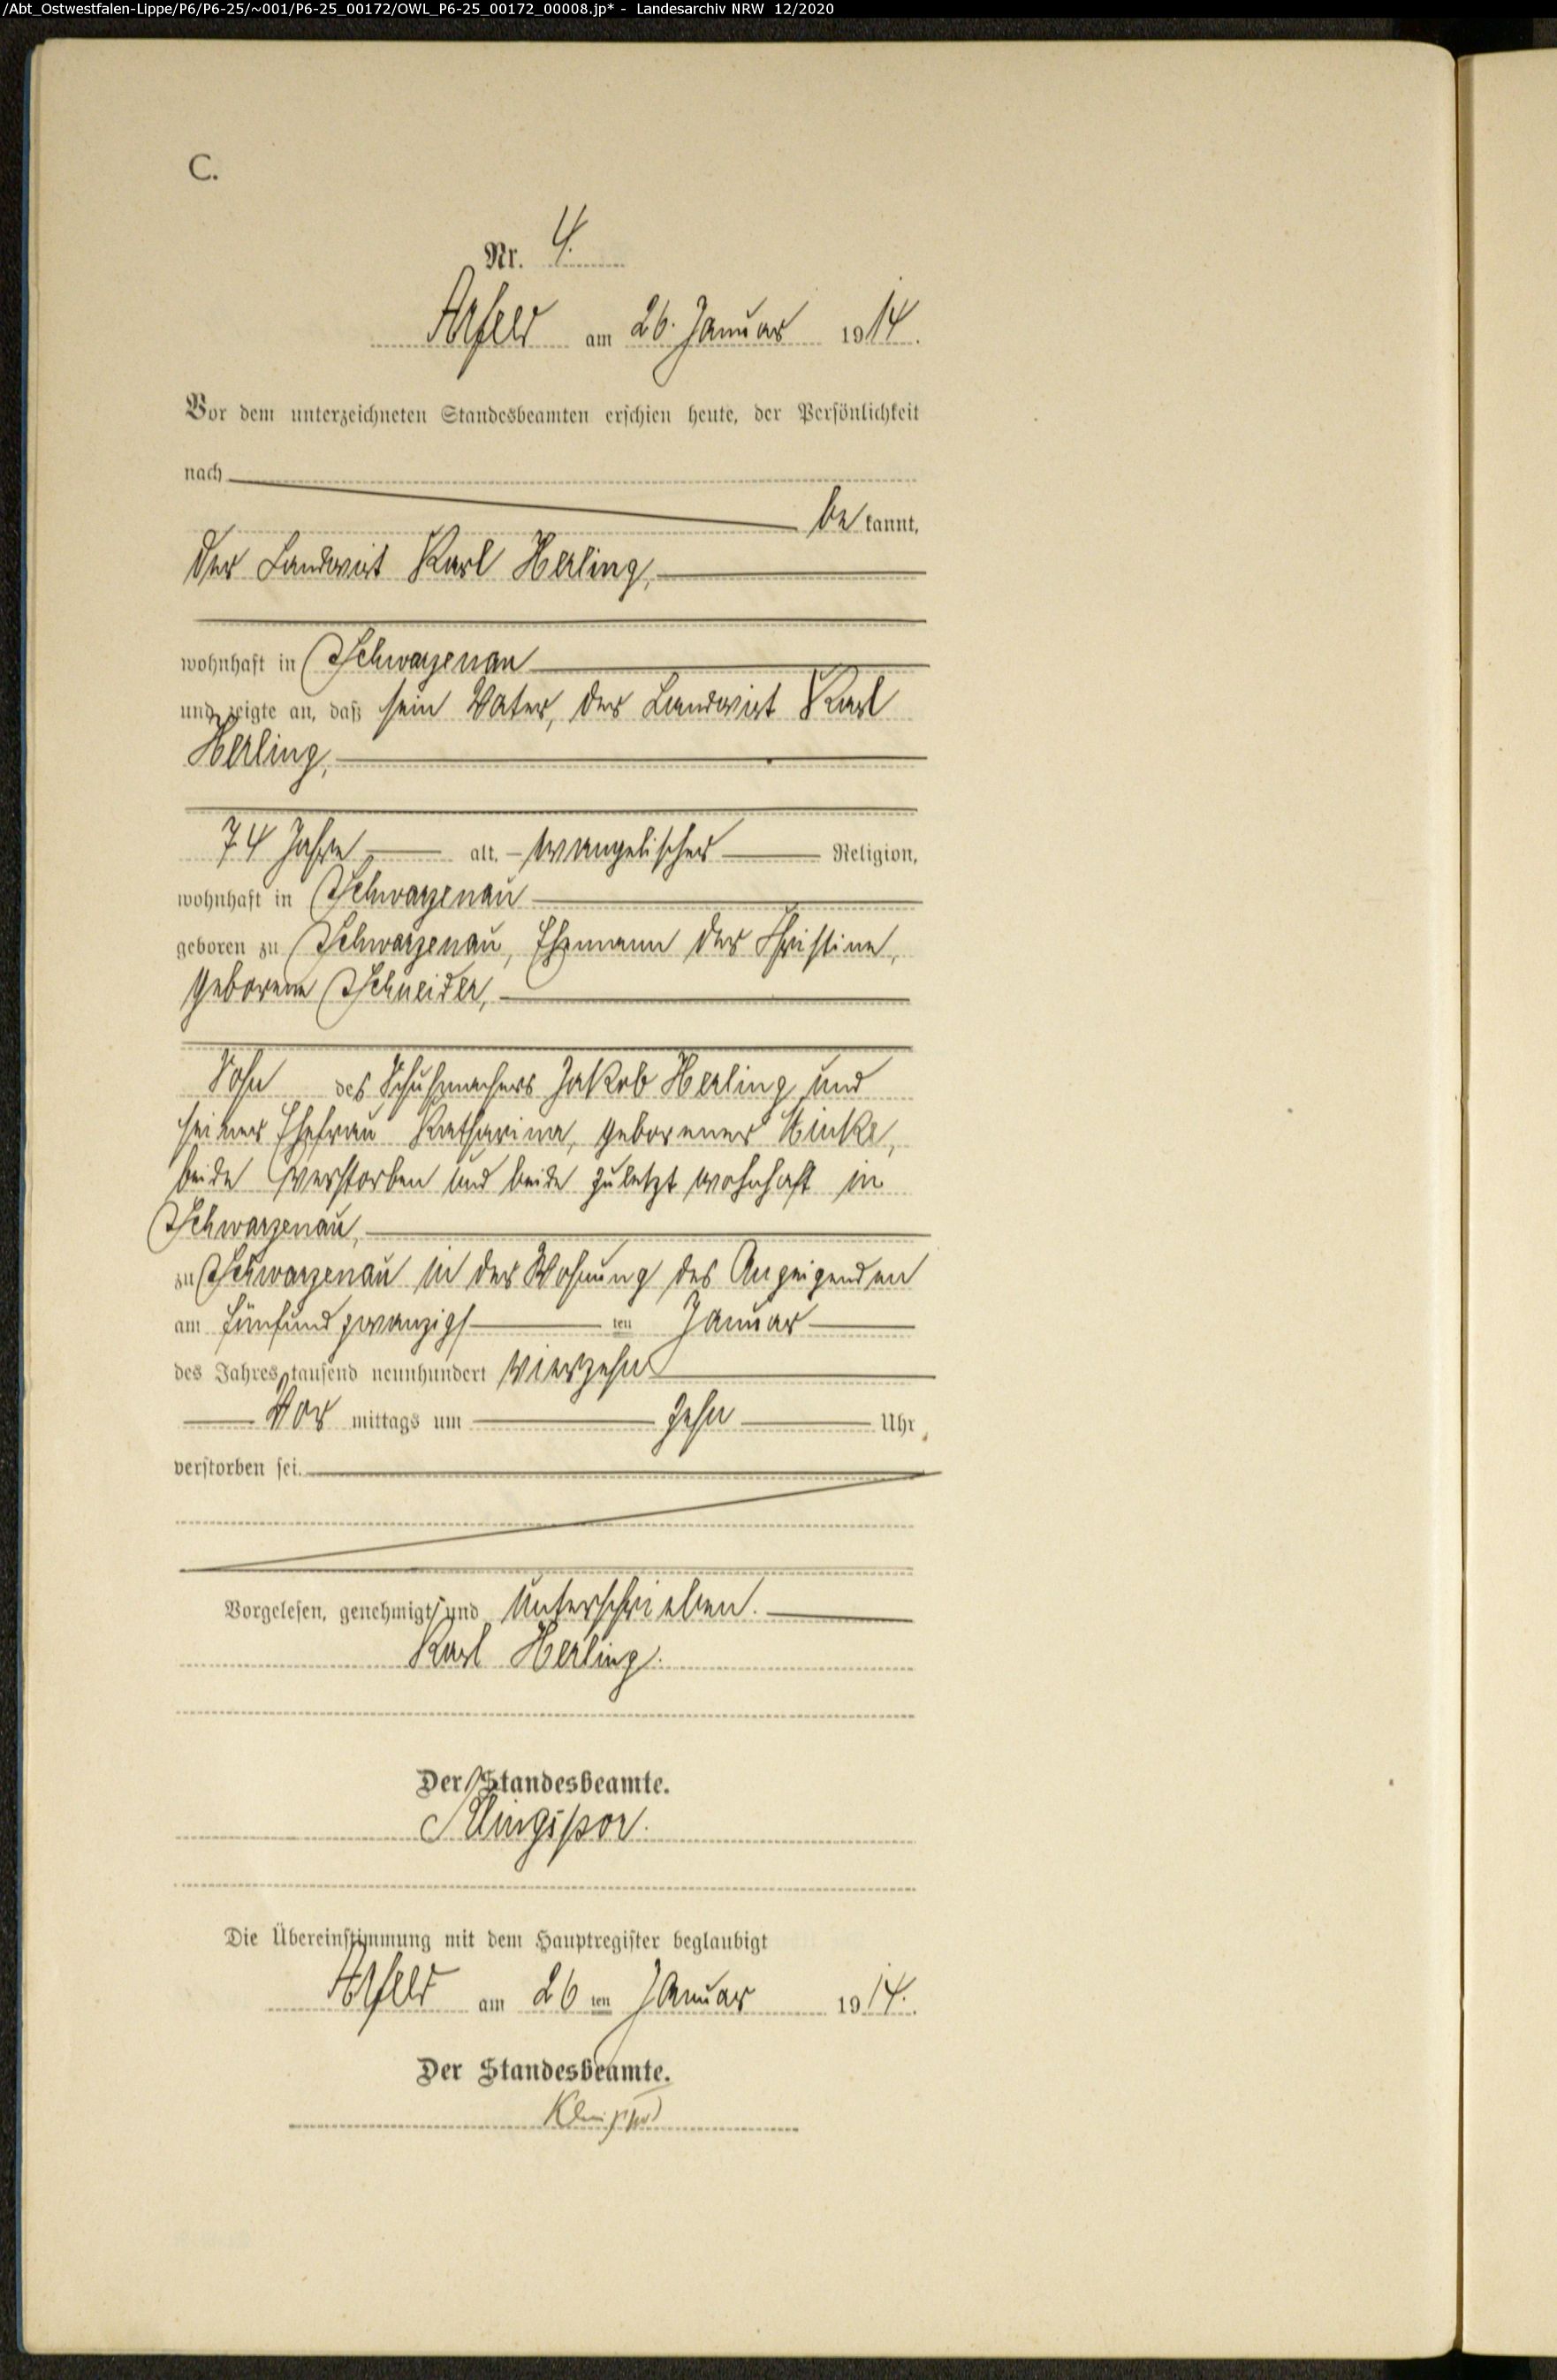 /Abt_Ostwestfalen-Lippe/P6/P6-25/~001/P6-25_00172/OWL_P6-25_00172_00008.jp* - Landesarchiv NRW 12/2020
C.
Nr. 4.
Arfeld am 26. Januar 1914.
Vor dem unterzeichneten Standesbeamten erschien heute, der Persönlichkeit
nach
bekannt,
der Landwirt Karl Herling,
wohnhaft in Schwarzenau
und zeigte an, daß sein Vater, der Landwirt Karl
Herling,
74 Jahre alt, evangelischer Religion,
wohnhaft in Schwarzenau
geboren zu Schwarzenau, Ehemann der Christine,
geborene Schneider,
Sohn des Schuhmachers Jakob Herling und
seiner Ehefrau Katharina, geborener
beide verstorben und beide zuletzt wohnhaft in
Schwarzenau,
zu Schwarzenau in der Wohnung des Anzeigenden
am fünfundzwanzigsten Januar
des Jahres tausend neunhundert vierzehn
Vormittags um zehn Uhr
verstorben sei.
Vorgelesen, genehmigt und unterschrieben.
Karl Herling.
Der Standesbeamte.
Klingspor.
Die Übereinstimmung mit dem Hauptregister beglaubigt
Arfeld am 26ten Januar 1914.
Der Standesbeamte.
Klingspor